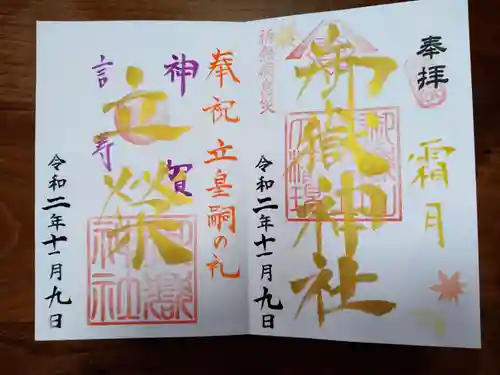 奉拝
霜月
御嶽神社
令和二年十一月九日
奉祝立皇嗣の礼
神賀
立榮
言寿
令和二年十一月九日